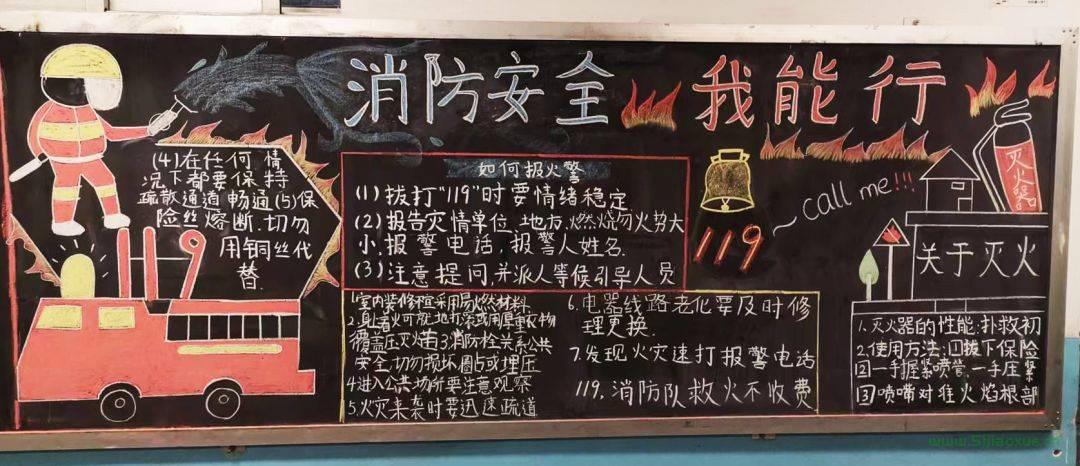 消防安全 我能行
(4)在任何情
况下都要保持
疏散通道畅通(5)保
险丝熔断,切勿
用铜丝代
替.
119
如何报火警
(1)拔打"119"时要情绪稳定
(2)报告灾情单位、地方、燃烧物火势大
小.报警电话,报警人姓名.
(3)注意提问,并派人等候引导人员
采用易燃材料
2.身上着火可就地打滚或用厚重衣物
覆盖压灭火苗3.消防栓关系公共
安全,切勿损坏圈占或埋压
4进入公共场所要注意观察
5.火灾来袭时要迅速疏道
6.电器线路老化要及时修
理更换.
7.发现火灾速打报警电话
119.消防队救火不收费
119
call me!!!
灭火器
关于灭火
1.灭火器的性能:扑救初
2.使用方法:①拔下保险
②一手握紧喷管,一手压紧
③喷嘴对准火焰根部